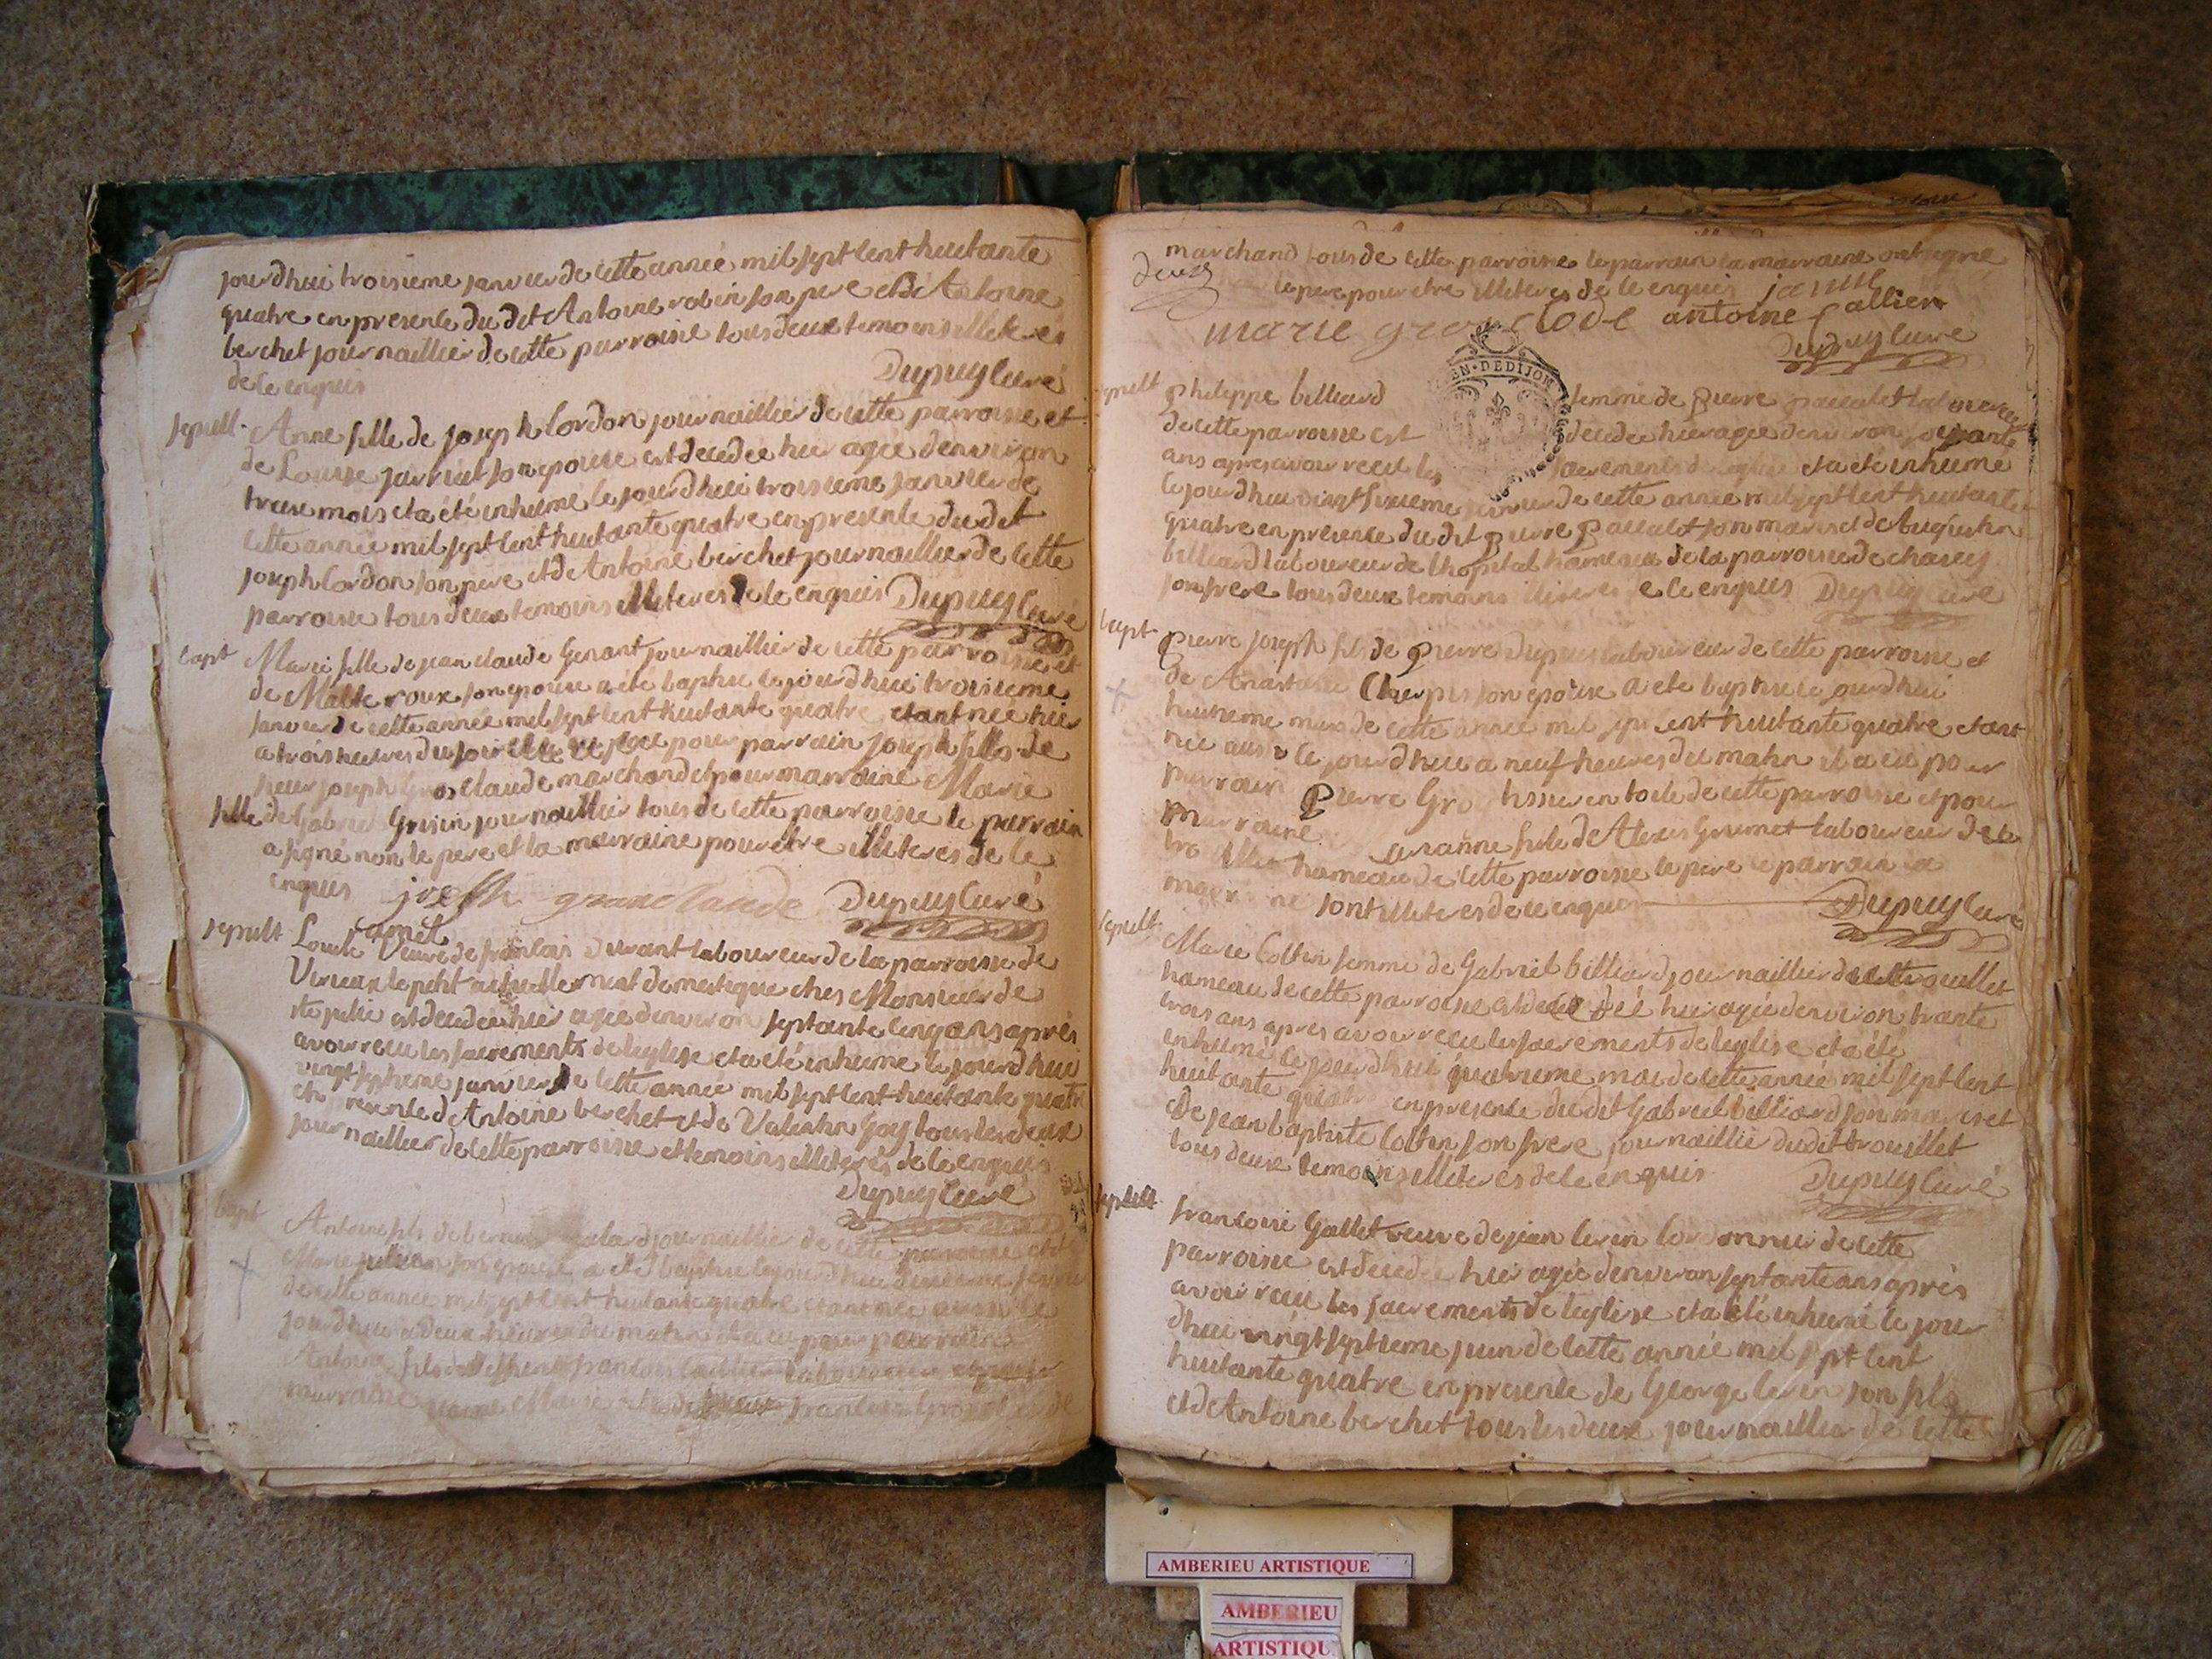 jourdhui troisieme janvier de cette année mil sept cent huitante
quatre en presence du dit Antoine robin son pere et de Antoine
berchet journaillier de cette parroisse tous deux temoins illiteres
de ce enquis Dupuy Curé
sepult. Anne fille de joseph Cordon journaillier de cette parroisse et
de Louise son epouse est decedée hier agée denviron
treize mois et a été inhumé le jourdhui troisieme janvier de
cette année mil sept cent huitante quatre en presence du dit
joseph Cordon son pere et de Antoine berchet journaillier de cette
parroisse tous deux temoins illiteres de ce enquis Dupuy Curé
bapt Marie fille de jean claude Genant journaillier de cette parroisse et
de roux son epouse a été baptisé le jourdhui troisieme
janvier de cette année mil sept cent huitante quatre etant née hier
a trois heures du soir elle a eu pour parrain joseph fils de
sieur joseph Gros Claude marchand et pour marraine Marie
fille de Gabriel Grisin journaillier tous de cette parroisse le parrain
a signé non le pere et la marraine pour etre illiteres de ce
enquis joseph grosclaude Dupuy Curé
camet
sepult Louise Veuve de francois Durant laboureur de la parroisse de
Virieux le petit actuellement domestique chez Monsieur de
ste julie est decedée hier agée denviron septante cinq ans après
avoir recu les sacrements de leglise et a été inhumé le jourdhui
vingt septieme janvier de cette année mil sept cent huitante quatre
en presence de Antoine berchet et de Valentin Goy tous les deux
journaillier de cette parroisse et temoins illiterés de ce enquis
Dupuy Curé
bapt Antoine fils de journaillier de cette parroisse et de
Marie julliean son epouse a été baptisé le jourdhui
de cette année mil sept cent huitante quatre etant né aussi le
jourdhui a deux heures du matin il a eu pour parrain
Antoine fils de francois laboureur et pour
marraine Marie fille de francois
marchand tous de cette parroisse le parrain la marraine ont signé
deux le pere pour etre illiteres de ce enquis
marie gros clode antoine Callier
Dupuy Curé
EN · DE DIJON
sepult philippe billiard femme de Pierre pacalet laboureur
de cette parroisse est decedée hier agée denviron
ans apres avoir recu les sacrements de leglise et a été inhumé
le jourdhui vingt sixieme de cette année mil sept cent huitante
quatre en presence du dit pierre pacalet son mari et de Augustin
billiard laboureur de lhopital hameau de la parroisse de chazey
son frere tous deux temoins illiteres de ce enquis Dupuy Curé
bapt Pierre joseph fils de Pierre Dupuy laboureur de cette parroisse et
de Anastasie son epouse a été baptisé le jourdhui
huitieme mars de cette année mil sept cent huitante quatre etant
né aussi le jourdhui a neuf heures du matin il a eu pour
parrain Pierre tissier en toile de cette parroisse et pour
marraine fille de Alexis Grumet laboureur de
hameau de cette parroisse le pere le parrain la
marraine sont illiteres de ce enquis Dupuy Curé
sepult Marie Cottin femme de Gabriel billiard journaillier de trouillet
hameau de cette parroisse est decedé hier agée denviron trante
trois ans apres avoir recu les sacrements de leglise et a été
inhumé le jourdhui quatrieme mai de cette année mil sept cent
huitante quatre en presence du dit Gabriel billiard son mari et
de jean baptiste Cottin son frere journaillier du dit trouillet
tous deux temoins illiteres de ce enquis Dupuy Curé
sepult francoise Gallet veuve de jean levin cordonnier de cette
parroisse est decedée hier agée denviron septante ans après
avoir recu les sacrements de leglise et a été inhumé le jour
dhui vingt septieme juin de cette année mil sept cent
huitante quatre en presence de George levin son fils
et de Antoine berchet tous les deux journaillier de cette
AMBERIEU ARTISTIQUE
AMBERIEU
ARTISTIQU